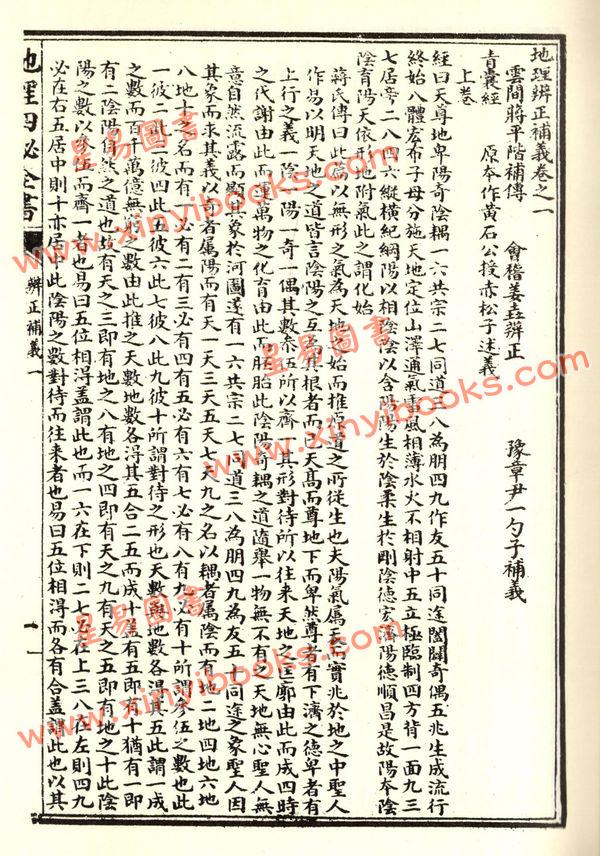 地理辨正補義卷之一
雲間蔣平階補傳　會稽姜垚辨正　豫章尹一勺子補義
青囊經　原本作黃石公授赤松子述義
上卷
經曰天尊地卑陽奇陰耦一六共宗二七同道三八為朋四九作友五十同途闔闢奇偶五兆生成流行
終始八體宏布子母分施天地定位山澤通氣雷風相薄水火不相射中五立極臨制四方背一面九三
七居旁二八四六縱橫紀綱陽以相陰陰以含陽陽生於陰柔生於剛陰德宏濟陽德順昌是故陽本陰
陰育陽天依形地附氣此之謂化始
蔣氏傳曰此篇以無形之氣為天地之始而推原道之所從生也夫陽氣屬天而實兆於地之中聖人
作易以明天地之道皆言陰陽之互為其根者而已天高而尊地下而卑然尊者有下濟之德卑者有
上行之義一陰一陽一奇一偶其數參伍所以齊一其形對待所以往來天地之匡廓由此而成四時
之代謝由此而運萬物之化育由此而胚胎此陰陽奇耦之道隨舉一物無不有之天地無心聖人無
意自然流露而顯其象於河圖遂有一六共宗二七同道三八為朋四九為友五十同途之象聖人因
其象而求其義以奇者屬陽而有天一天三天五天七天九之名以耦者屬陰而有地二地四地六地
八地十之名而有一必有二有三必有四有五必有六有七必有八有九必有十所謂參伍之數也此
一彼二此三彼四此五彼六此七彼八此九彼十所謂對待之形也天數與地數各得其五此謂一成
之數而百千萬億無窮之數由此推之天數地數各得其五合二五而成十蓋有五即有十猶有一即
有二陰陽自然之道也故有天之三即有地之八有地之四即有天之九有天之五即有地之十此陰
陽之數以參伍而齊一者也易曰五位相得蓋謂此也而一六在下則二七必在上三八在左則四九
必在右五居中則十亦居中此陰陽之數對待而往來者也易曰五位相得而各有合蓋謂此也以其
地理四秘全書
辨正補義一
一
星易圖書
www.xinyibooks.com
星易圖書
www.xinyibooks.com
星易圖書
www.xinyibooks.com